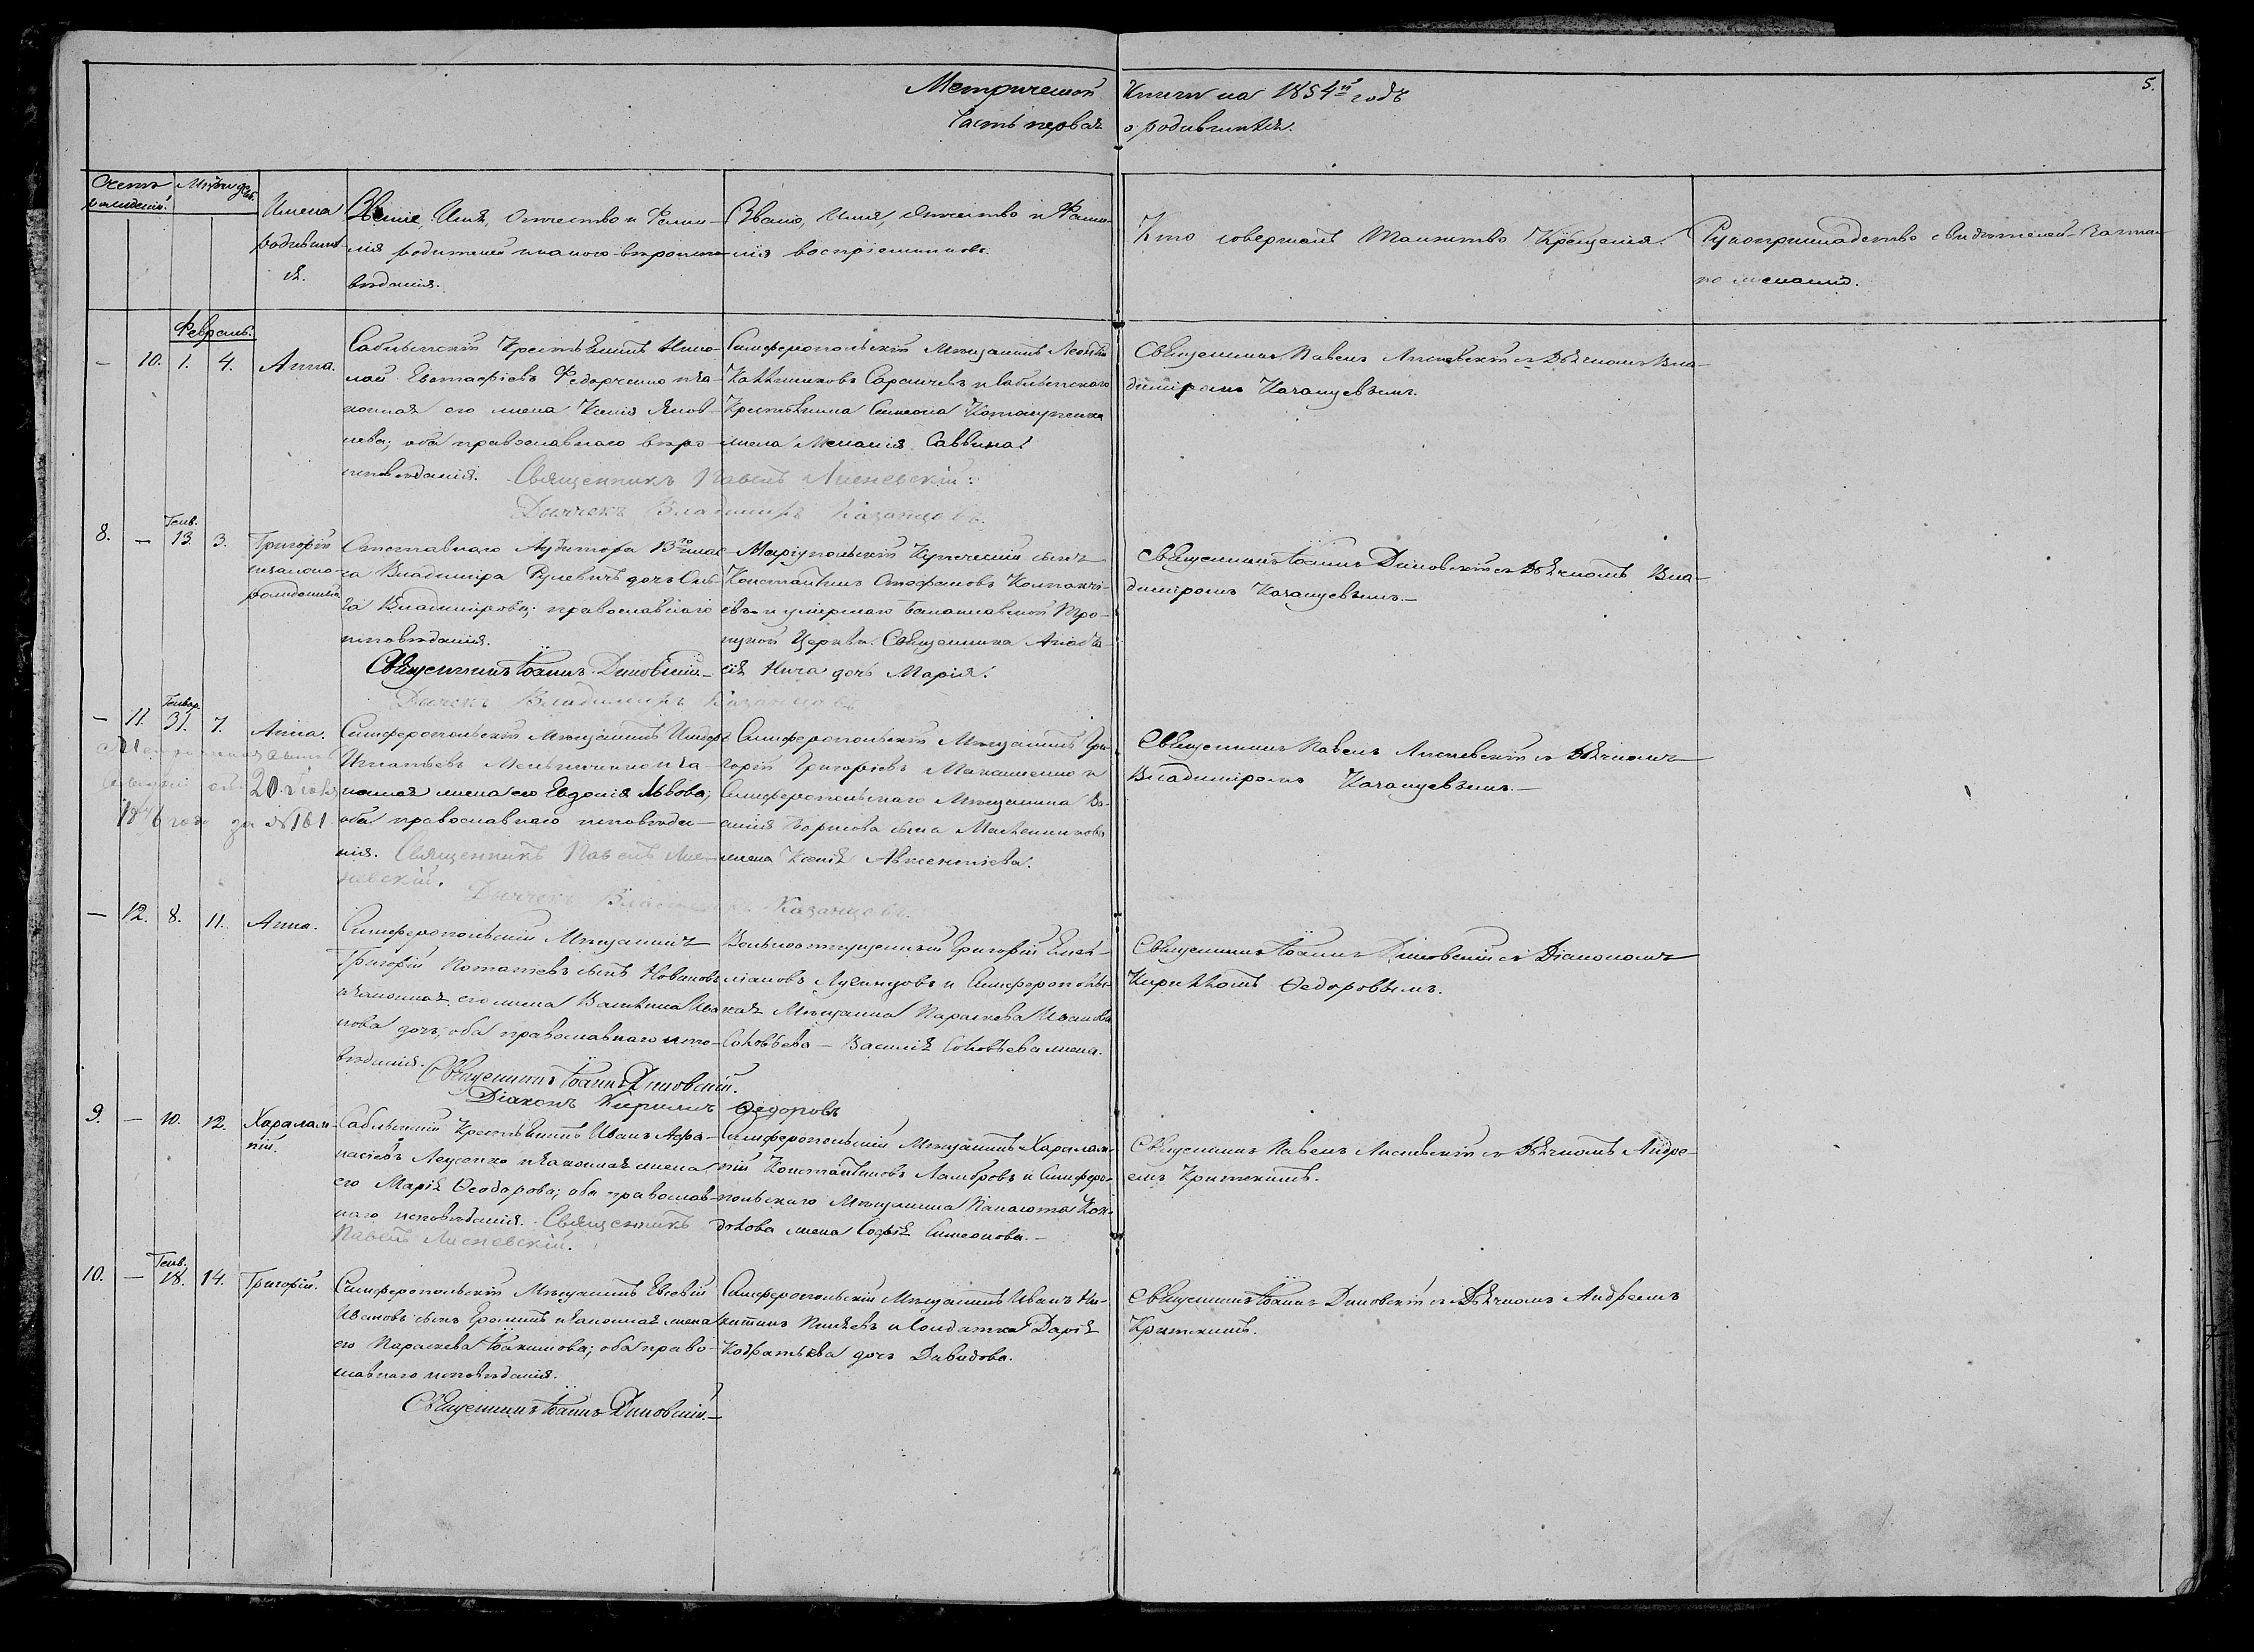 Метрической Книги на 1854й годъ 5.
Часть первая о родившихся.
Счетъ Мѣсяцъ
Имена
родивших-
ся.
Званіе, Имя, Отчество и Фами-
лія родителей и какого вѣроиспо-
вѣданія.
Званіе, Имя, Отчество и Фами-
лія воспріемниковъ.
Кто совершалъ Таинство Крещенія.
Рукоприкладство свидѣтелей записи
по желанію.
Февраль.
— 10. 1. 4. Анна.
Сабльскій Крестьянинъ Нико-
лай Евстафіевъ Федорченко и за-
конная его жена Ксенія Яков-
лева; оба православнаго вѣро-
исповѣданія. Священникъ Павелъ Лисневскій.
Дьячекъ Владимиръ Казанцовъ.
Симферопольскій Мѣщанинъ Леонтій
Калинниковъ Саранчевъ и Сабльскаго
Крестьянина Симеона
жена Меланія Саввина.
Священникъ Павелъ Лисневскій съ Дьячкомъ Вла-
димиромъ Казанцевымъ.
8. — Генв. 13. 3. Григорій
незаконо-
рожденный
Отставнаго Аудитора 13го клас-
са Владиміра Рулевичъ дочь Оль-
га Владимірова; православнаго
исповѣданія.
Священникъ Іоаннъ Диковскій.
Дьячекъ Владимиръ Казанцовъ
Маріупольскій Купеческій сынъ
Константинъ Стефановъ
и умершаго Балаклавской Тро-
ицкой Церкви Священника
дочь Марія.
Священникъ Іоаннъ Диковскій съ Дьячкомъ Вла-
димиромъ Казанцевымъ.
— 11. Генвар. 31. 7. Анна.
20
за № 161
Симферопольскій Мѣщанинъ
Игнатьевъ Мельниченко и за-
конная жена его Евдокія Львова;
оба православнаго исповѣда-
нія. Священникъ Павелъ Лис-
невскій.
Дьячекъ Владимиръ Казанцовъ.
Симферопольскій Мѣщанинъ Гри-
горій Григоріевъ Макашенко и
Симферопольскаго Мѣщанина Ва-
силія Борисова сына Масленникова
жена Ксенія Авксентіева.
Священникъ Павелъ Лисневскій съ Дьячкомъ
Владимиромъ Казанцевымъ.
— 12. 8. 11. Анна.
Симферопольскій Мѣщанинъ
Григорій Потапіевъ сынъ Новаковъ
и законная его жена Васил​иса Ива-
нова дочь; оба православнаго испо-
вѣданія. Священникъ Іоаннъ Диковскій.
Діаконъ Кириллъ Ѳедоровъ
Вольноотпущенный Григорій Емель-
яновъ и Симферополь-
ская Мѣщанка Параскева Иванова
Соловьева — Василія Соловьева жена.
Священникъ Іоаннъ Диковскій съ Діакономъ
Кирилломъ Ѳедоровымъ.
9. — 10. 12. Харалам-
пій.
Сабльскій Крестьянинъ Иванъ Афа-
насіевъ Леусенко и законная жена
его Марія Ѳеодорова; оба православ-
наго исповѣданія. Священникъ
Павелъ Лисневскій.
Симферопольскій Мѣщанинъ Харалам-
пій Константиновъ Ламбровъ и Симферо-
польскаго Мѣщанина Панаіота
жена Софія Симеонова.
Священникъ Павелъ Лисневскій съ Дьячкомъ Андре-
емъ Критскимъ.
10. — Генв. 18. 14. Григорій.
Симферопольскій Мѣщанинъ Евсевій
Ивановъ сынъ Ероминъ и законная жена
его Параскева Іоакимова; оба право-
славнаго исповѣданія.
Священникъ Іоаннъ Диковскій.
Симферопольскій Мѣщанинъ Иванъ Ни-
китинъ и Солдатка Дарія
Кодратьева дочь Давидова.
Священникъ Іоаннъ Диковскій съ Дьячкомъ Андреемъ
Критскимъ.